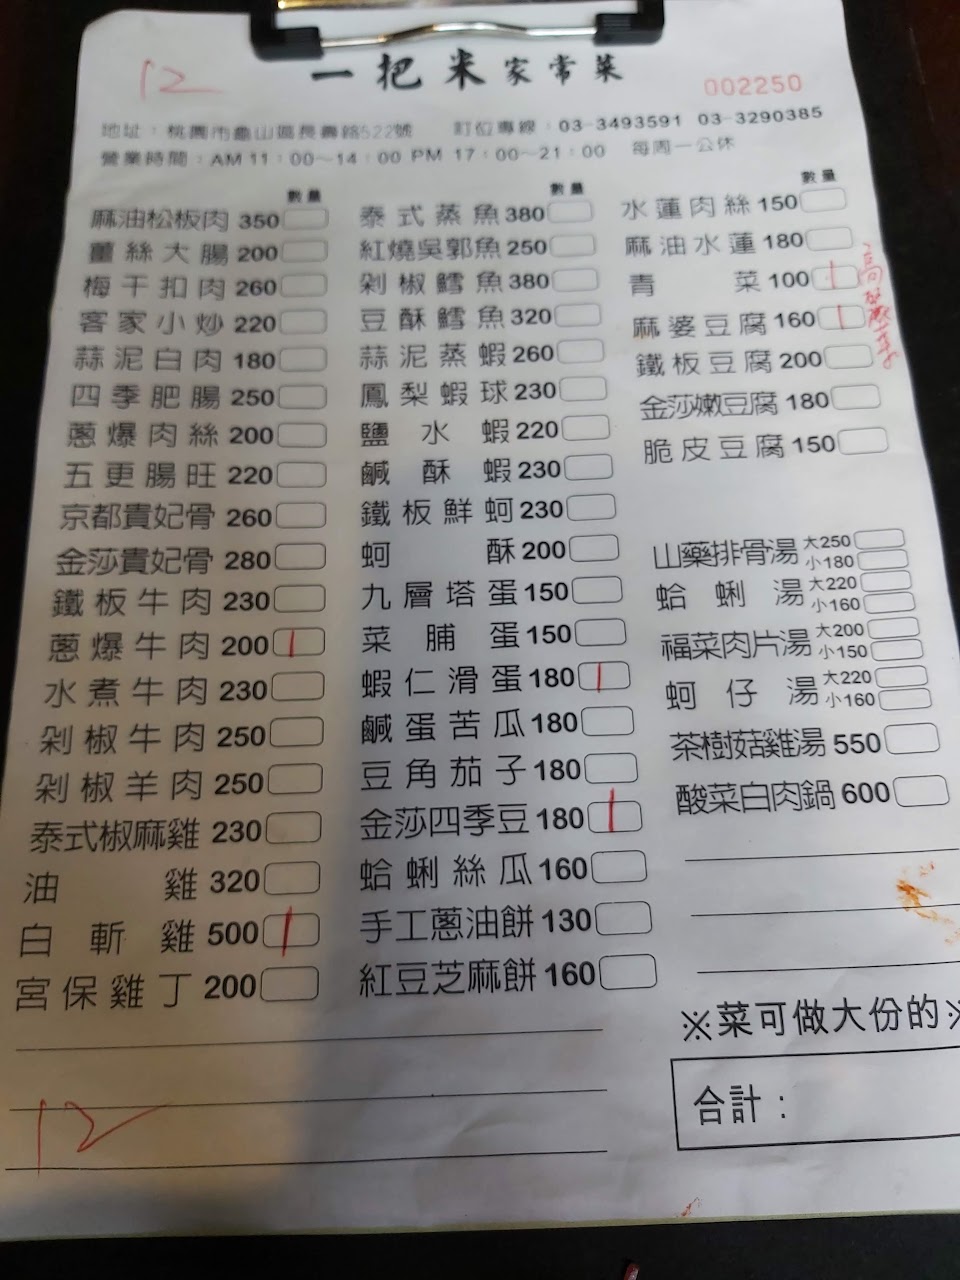 12
一把米家常菜
002250
地址：桃園市龜山區長壽路522號 訂位專線：03-3493591 03-3290385
營業時間：AM 11：00～14：00 PM 17：00～21：00 每周一公休
數量
麻油松板肉 350
薑絲大腸 200
梅干扣肉 260
客家小炒 220
蒜泥白肉 180
四季肥腸 250
蔥爆肉絲 200
五更腸旺 220
京都貴妃骨 260
金莎貴妃骨 280
鐵板牛肉 230
蔥爆牛肉 200 1
水煮牛肉 230
剁椒牛肉 250
剁椒羊肉 250
泰式椒麻雞 230
油雞 320
白斬雞 500 1
宮保雞丁 200
12
數量
泰式蒸魚 380
紅燒吳郭魚 250
剁椒鱈魚 380
豆酥鱈魚 320
蒜泥蒸蝦 260
鳳梨蝦球 230
鹽水蝦 220
鹹酥蝦 230
鐵板鮮蚵 230
蚵酥 200
九層塔蛋 150
菜脯蛋 150
蝦仁滑蛋 180 1
鹹蛋苦瓜 180
豆角茄子 180
金莎四季豆 180 1
蛤蜊絲瓜 160
手工蔥油餅 130
紅豆芝麻餅 160
數量
水蓮肉絲 150
麻油水蓮 180
青菜 100 1
高麗菜
麻婆豆腐 160 1
鐵板豆腐 200
金莎嫩豆腐 180
脆皮豆腐 150
山藥排骨湯 大250
小180
蛤蜊湯 大220
小160
福菜肉片湯 大200
小150
蚵仔湯 大220
小160
茶樹菇雞湯 550
酸菜白肉鍋 600
※菜可做大份的※
合計：